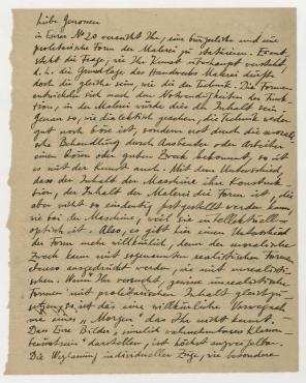 Liebe Genossen
in Eurer Nr 20 versucht Ihr, eine bürgerliche und eine
proletarische Form der Malerei zu
steht die Frage, wie Ihr Kunst überhaupt versteht,
d.h. die Grundlage des Handwerks Malerei dürfte
doch die gleiche sein, wie die der Technik. Die Formen
entwickeln sich nach den der Funk-
tion, in der Malerei würde dies der Inhalt sein.
Genau so, wie dialektisch gesehen, die Technik weder
gut noch böse ist, sondern erst durch die
Behandlung durch Ausbeuter oder Arbeiter
einen bösen oder guten Zweck bekommt, so ist
es mit der Kunst auch. Mit dem Unterschied
dass der Inhalt der Maschine ihre Konstruk-
tion, der Inhalt der Malerei die Form ist, die
aber nicht so eindeutig festgestellt werden kann
wie bei der Maschine, weil sie intellektuell
optisch ist. Also, es gibt hier einen Unterschied
der Form mehr willkürlich, denn der moralische
Zweck kann mit sogenannten realistischen Formen
genau so ausgedrückt werden, wie mit unrealisti-
schen. Wenn Ihr versucht, gewisse unrealistische
Formen mit proletarischem Inhalt gleich
so ist das eine willkürliche
eines "Morgen" das Ihr nicht kennt.
Dass Eure Bilder, ziemlich
darstellen, ist höchst
Die Weglassung individueller Züge, die besondere